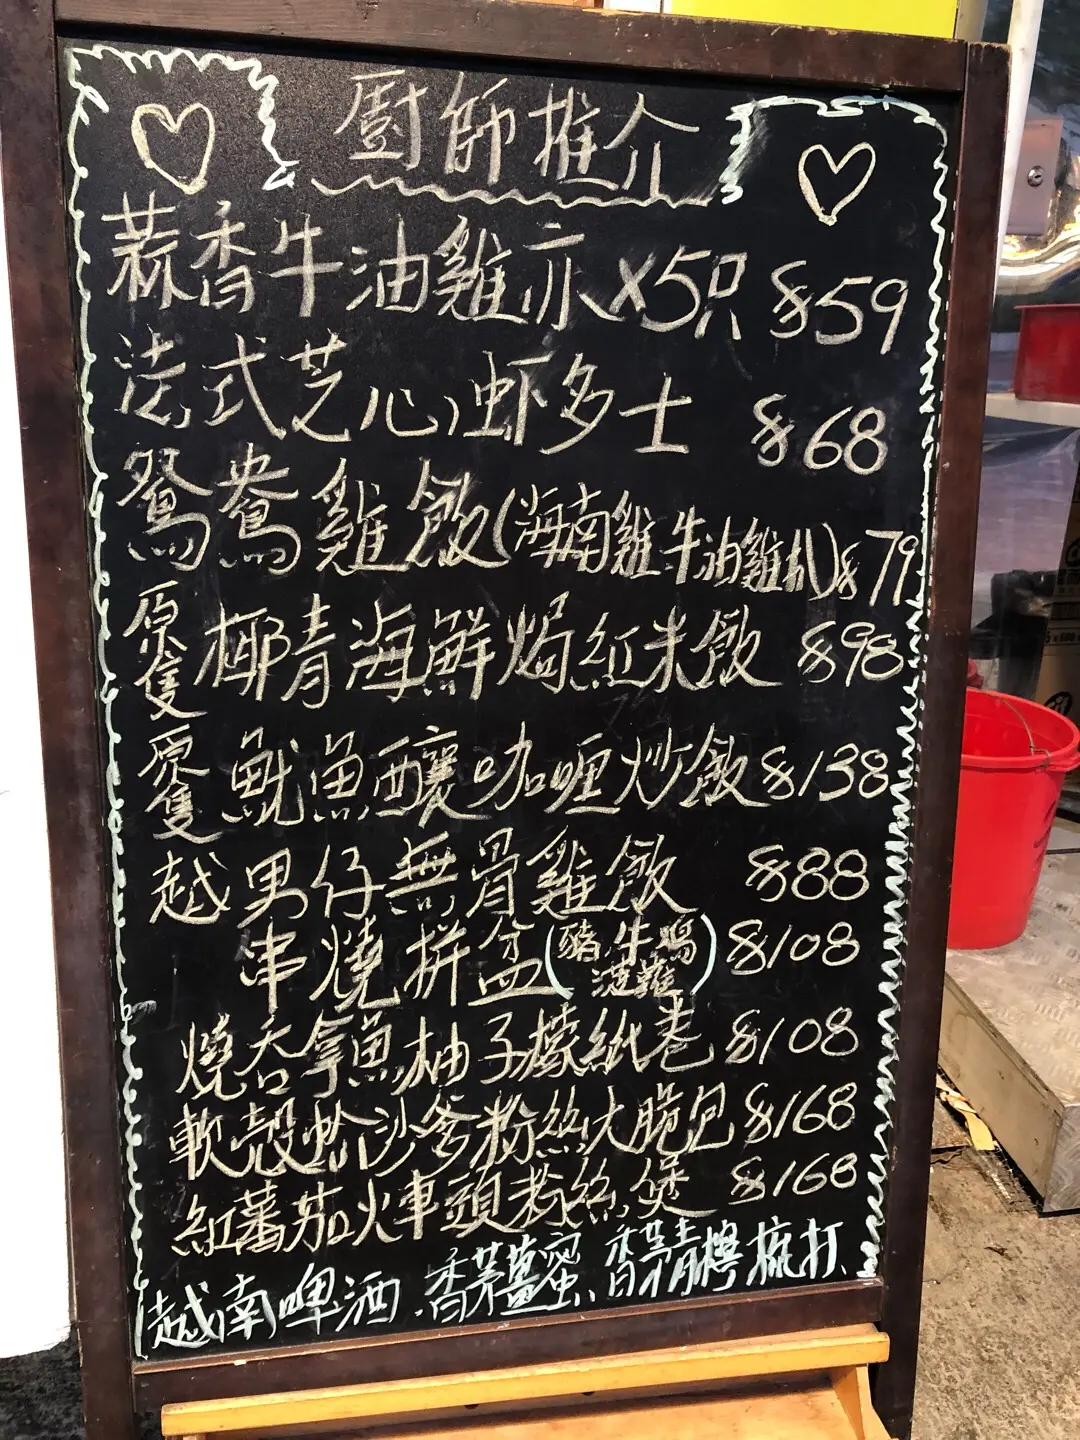 廚師推介
蒜香牛油雞亦x5只 $59
法式芝心虾多士 $68
鴛鴦雞飯(海南雞牛油雞扒) $79
原隻椰青海鮮焗紅米飯 $98
原隻魷魚釀咖喱炒飯 $138
越男仔無骨雞飯 $88
串燒拼盆(豬牛鴨菠雞) $108
燒吞拿魚柚子檬紙卷 $108
軟殼蟹沙爹粉絲大脆包 $168
紅蕃茄火車頭粉絲煲 $168
越南啤酒.香茅薑蜜.香茅青檸梳打.